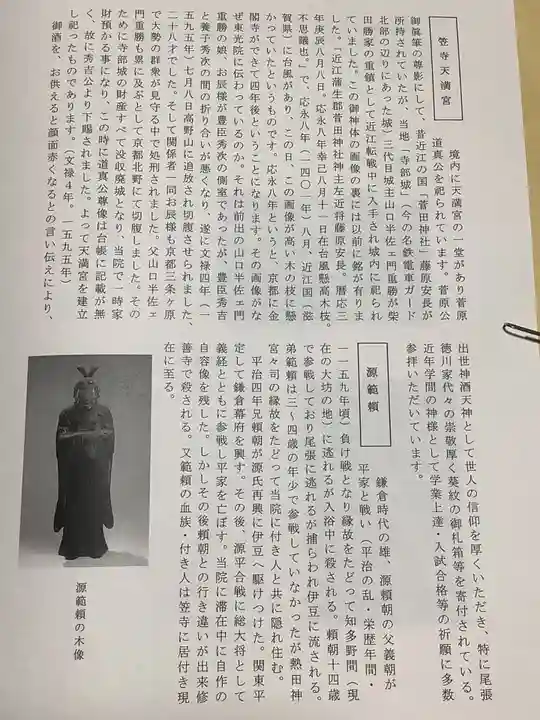 笠寺天満宮
境内に天満宮の一堂があり菅原
道真公を祀られています。菅原公
御眞筆の尊影にして、昔近江の国「菅田神社」藤原安長が
所持されていたが、当地「寺部城」(今の名鉄電車ガード
北部の辺りにあった城)三代目城主山口半左ェ門重勝が柴
田勝家の重鎮として近江転戦中に入手され城内に祀られ
ていました。この御神体の画像の裏には以前に銘が有りま
した。「近江蒲生郡菅田神社神主左近将藤原安長。暦応三
年庚辰八月八日。応永八年幸己八月十一日在台風懸高木枝。
不思議也。」で、応永八年(一四〇一年)八月、近江国(滋
賀県)に台風があり、この日、この画像が高い木の枝に懸
かっていたというものです。応永八年というと、京都に金
閣寺ができて四年後ということになります。その画像がな
ぜ東光院に伝わっているのか。それは前出の山口半左ェ門
重勝の娘、お辰様が豊臣秀次の側室であったが、豊臣秀吉
と養子秀次の間の折り合いが悪くなり、遂に文禄四年(一
五九五年)七月八日高野山に追放され切腹させられました、
二十八才でした。そして関係者一同お辰様も京都三条ヶ原
で大勢の群衆が見守る中で処刑されました。父山口半左ェ
門重勝も累に及ぶとして京都北野にて切腹しました。その
ために寺部城の財産すべて没収廃城となり、当院で一時家
財預かる事になり、この時に道真公尊像は台帳に記載が無
く、故に秀吉公より下賜されました。よって天満宮を建立
し祀ったものであります。(文禄4年。一五九五年)
御酒を、お供えると顔面赤くなるとの言い伝えにより、
出世神酒天神として世人の信仰を厚くいただき、特に尾張
徳川家代々の崇敬厚く葵紋の御札箱等を寄付されている。
近年学問の神様として学業上達・入試合格等の祈願に多数
参拝いただいています。
源範頼
鎌倉時代の雄、源頼朝の父義朝が
平家と戦い(平治の乱・栄歴年間・
一一五九年頃)負け戦となり縁故をたどって知多野間(現
在の大坊の地)に逃れるが入浴中に殺される。頼朝十四歳
で参戦しており尾張に逃れるが捕らわれ伊豆に流される。
弟範頼は三~四歳の年少で参戦していなかったが熱田神
宮々司の縁故をたどって当院に付き人と共に隠れ住む。
平治四年兄頼朝が源氏再興に伊豆へ駆けつけた。関東平
定して鎌倉幕府を興す。その後、源平合戦に総大将として
義経とともに参戦し平家を亡ぼす。当院に滞在中に自作の
自容像を残した。しかしその後頼朝との行き違いが出来修
善寺で殺される。又範頼の血族・付き人は笠寺に居付き現
在に至る。
源範頼の木像